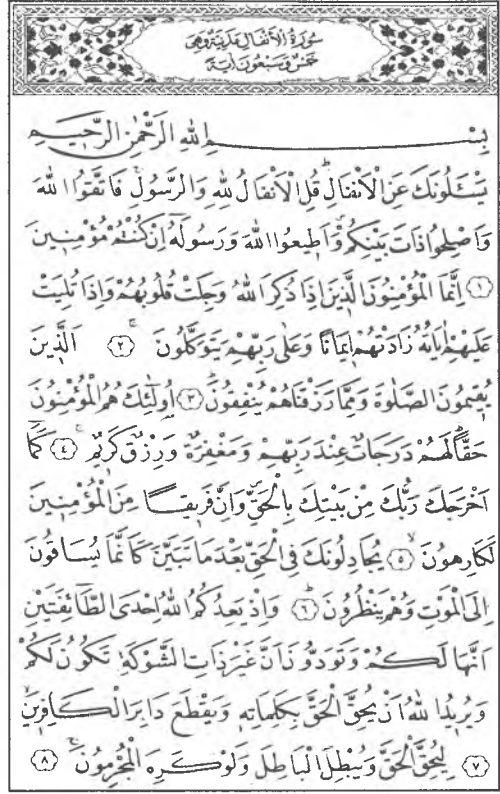 سُورَةُ الْاَنْفَالِ مَدَنِيَّةٌ وَهِىَ
خَمْسٌ وَسَبْعُونَ اٰيَةً
بِسْــــــــــــمِ اللهِ الرَّحْمٰنِ الرَّحِيمِ
يَسْـَٔلُونَكَ عَنِ الْاَنْفَالِ قُلِ الْاَنْفَالُ لِلهِ وَالرَّسُولِ فَاتَّقُوا اللهَ
وَاَصْلِحُوا ذَاتَ بَيْنِكُمْ وَاَطِيعُوا اللهَ وَرَسُولَهُٓ اِنْ كُنْتُمْ مُؤْمِنِينَ
﴿١﴾ اِنَّمَا الْمُؤْمِنُونَ الَّذِينَ اِذَا ذُكِرَ اللهُ وَجِلَتْ قُلُوبُهُمْ وَاِذَا تُلِيَتْ
عَلَيْهِمْ اٰيَاتُهُ زَادَتْهُمْ اِيمَانًا وَعَلٰى رَبِّهِمْ يَتَوَكَّلُونَ ﴿٢﴾ اَلَّذِينَ
يُقِيمُونَ الصَّلٰوةَ وَمِمَّا رَزَقْنَاهُمْ يُنْفِقُونَ ﴿٣﴾ اُولٰٓئِكَ هُمُ الْمُؤْمِنُونَ
حَقًّا لَهُمْ دَرَجَاتٌ عِنْدَ رَبِّهِمْ وَمَغْفِرَةٌ وَرِزْقٌ كَرِيمٌ ﴿٤﴾ كَمَٓا
اَخْرَجَكَ رَبُّكَ مِنْ بَيْتِكَ بِالْحَقِّ وَاِنَّ فَرِيقًا مِنَ الْمُؤْمِنِينَ
لَكَارِهُونَ ﴿٥﴾ يُجَادِلُونَكَ فِى الْحَقِّ بَعْدَ مَا تَبَيَّنَ كَاَنَّمَا يُسَاقُونَ
اِلَى الْمَوْتِ وَهُمْ يَنْظُرُونَ ﴿٦﴾ وَاِذْ يَعِدُكُمُ اللهُ اِحْدَى الطَّٓائِفَتَيْنِ
اَنَّهَا لَكُمْ وَتَوَدُّونَ اَنَّ غَيْرَ ذَاتِ الشَّوْكَةِ تَكُونُ لَكُمْ
وَيُرِيدُ اللهُ اَنْ يُحِقَّ الْحَقَّ بِكَلِمَاتِهِ وَيَقْطَعَ دَابِرَ الْكَافِرِينَ
﴿٧﴾ لِيُحِقَّ الْحَقَّ وَيُبْطِلَ الْبَاطِلَ وَلَوْ كَرِهَ الْمُجْرِمُونَ ﴿٨﴾